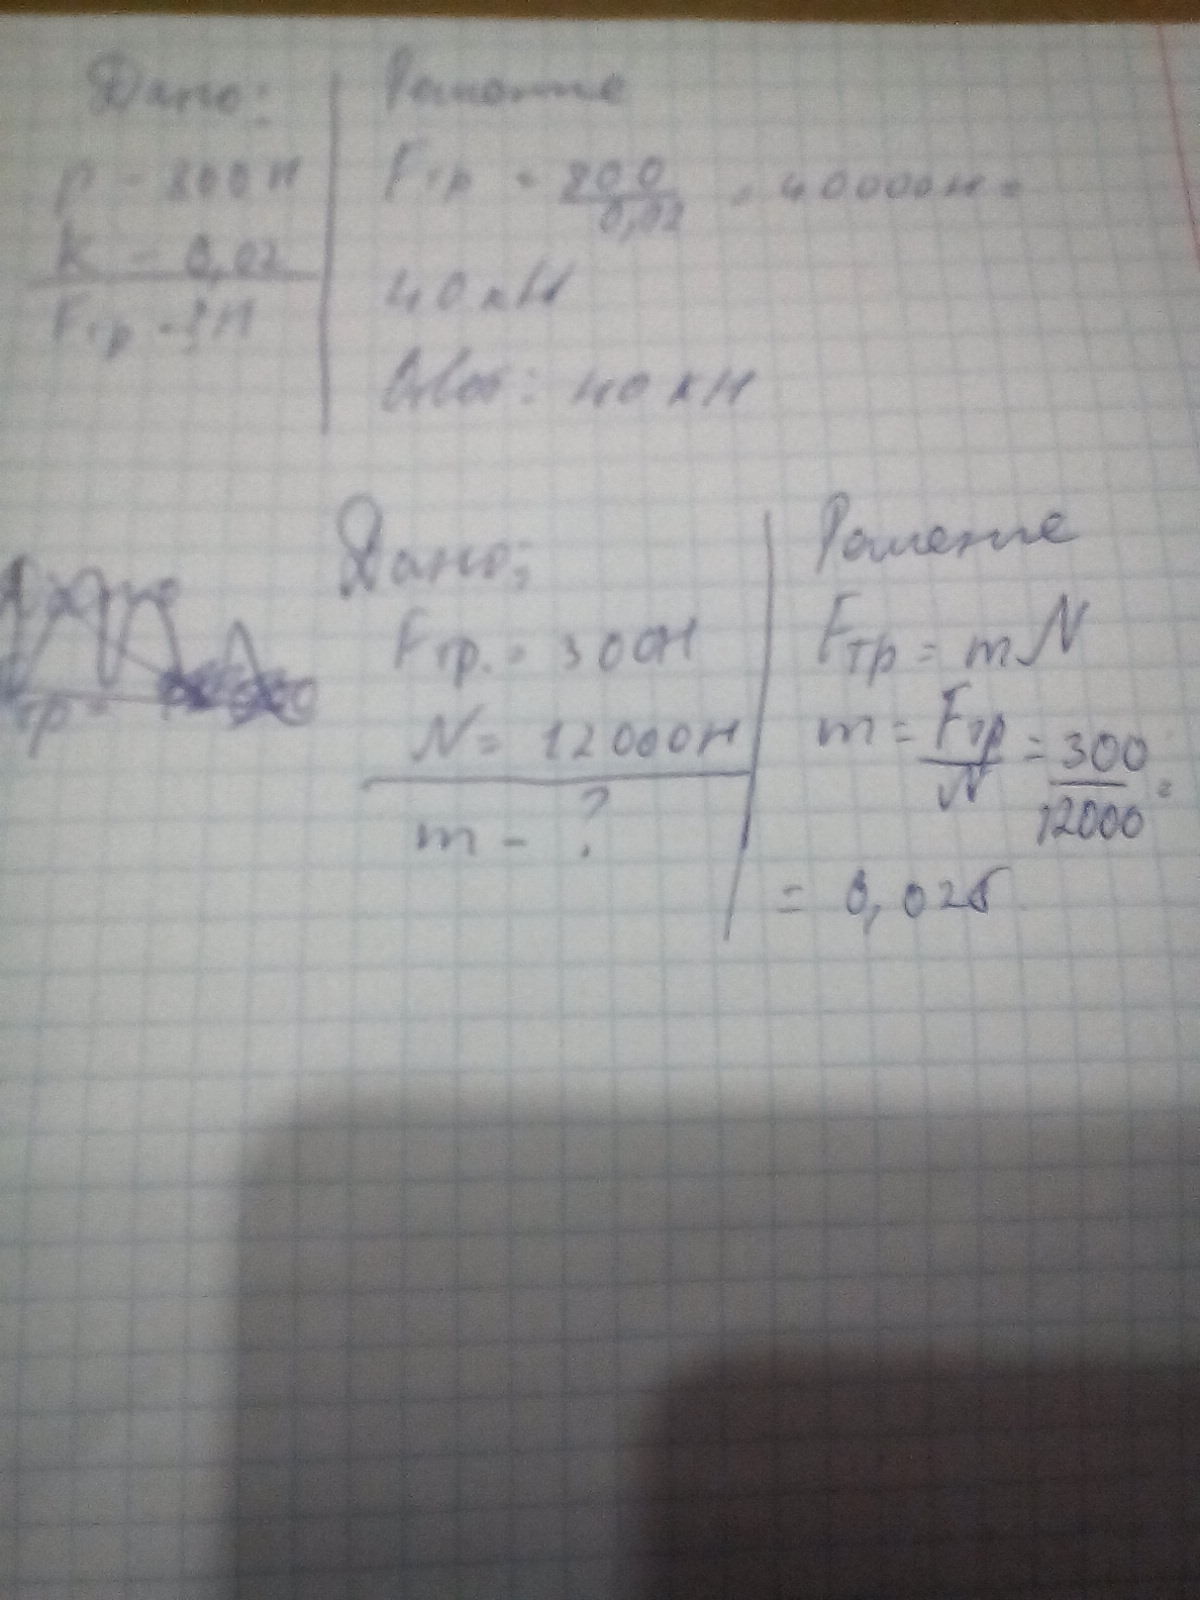 Дано:
P - 800 Н
k - 0,02
Fтр - ? Н
Решение
Fтр = 800/0,02 = 40000 Н =
40 кН
Ответ: 40 кН
Дано:
Fтр. = 300Н
N = 12000Н
m - ?
Решение
Fтр = mN
m = Fтр/N = 300/12000 =
= 0,025